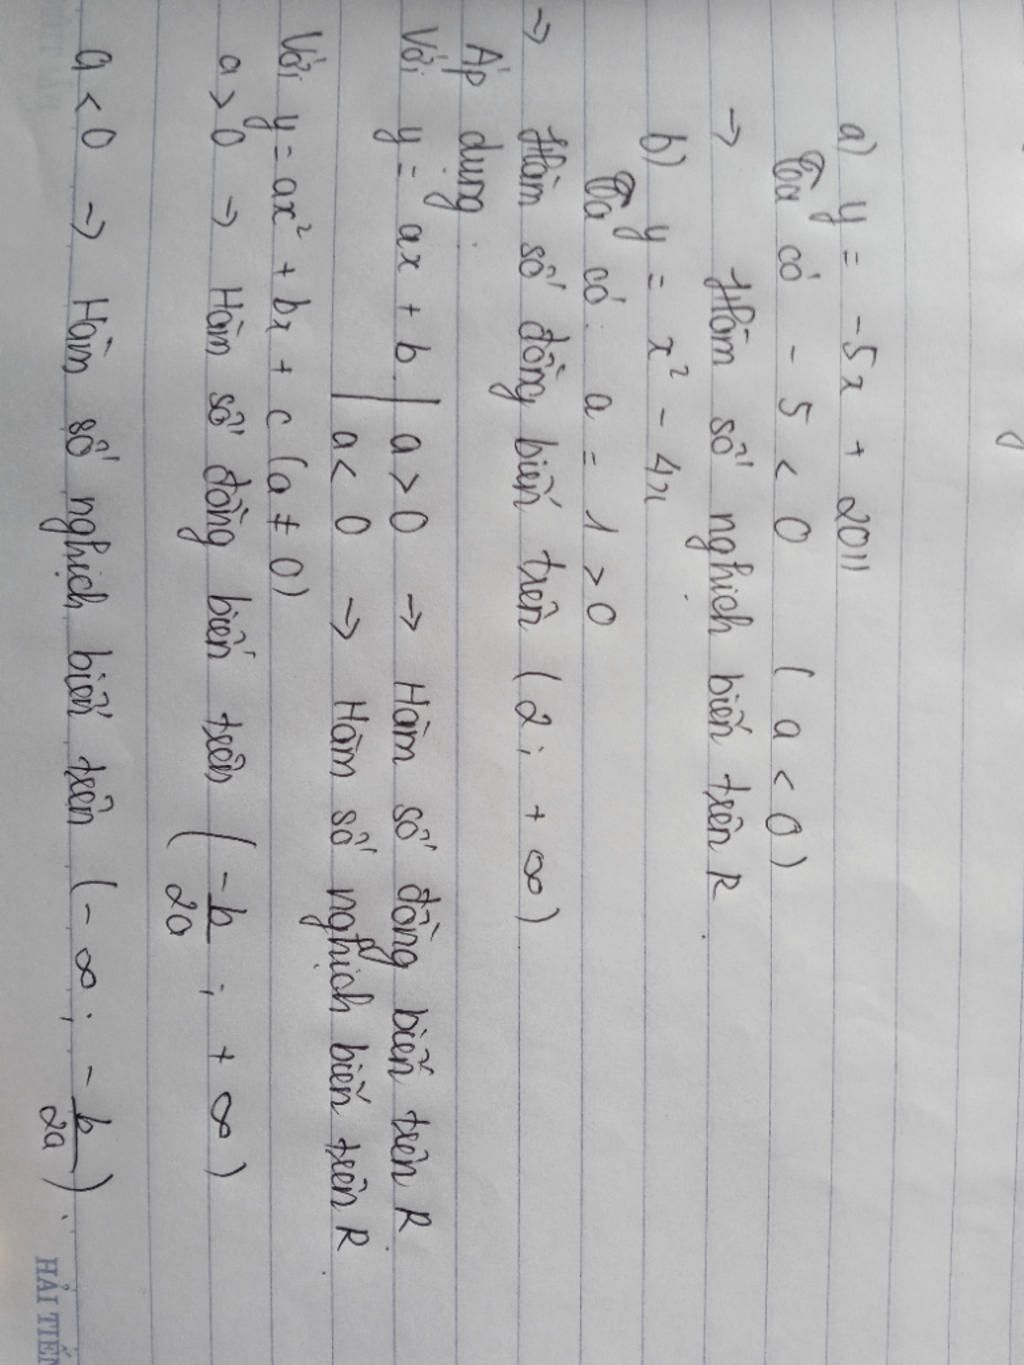 a) y = -5x + 2011
Ta có - 5 < 0 (a < 0)
→ Hàm số nghịch biến trên R.
b) y = x² - 4x
Ta có: a = 1 > 0
→ Hàm số đồng biến trên (2; +∞)
Áp dụng:
Với y = ax + b | a > 0 → Hàm số đồng biến trên R
| a < 0 → Hàm số nghịch biến trên R.
Với y = ax² + bx + c (a ≠ 0)
a > 0 → Hàm số đồng biến trên (-b/2a; +∞)
a < 0 → Hàm số nghịch biến trên (-∞; -b/2a).